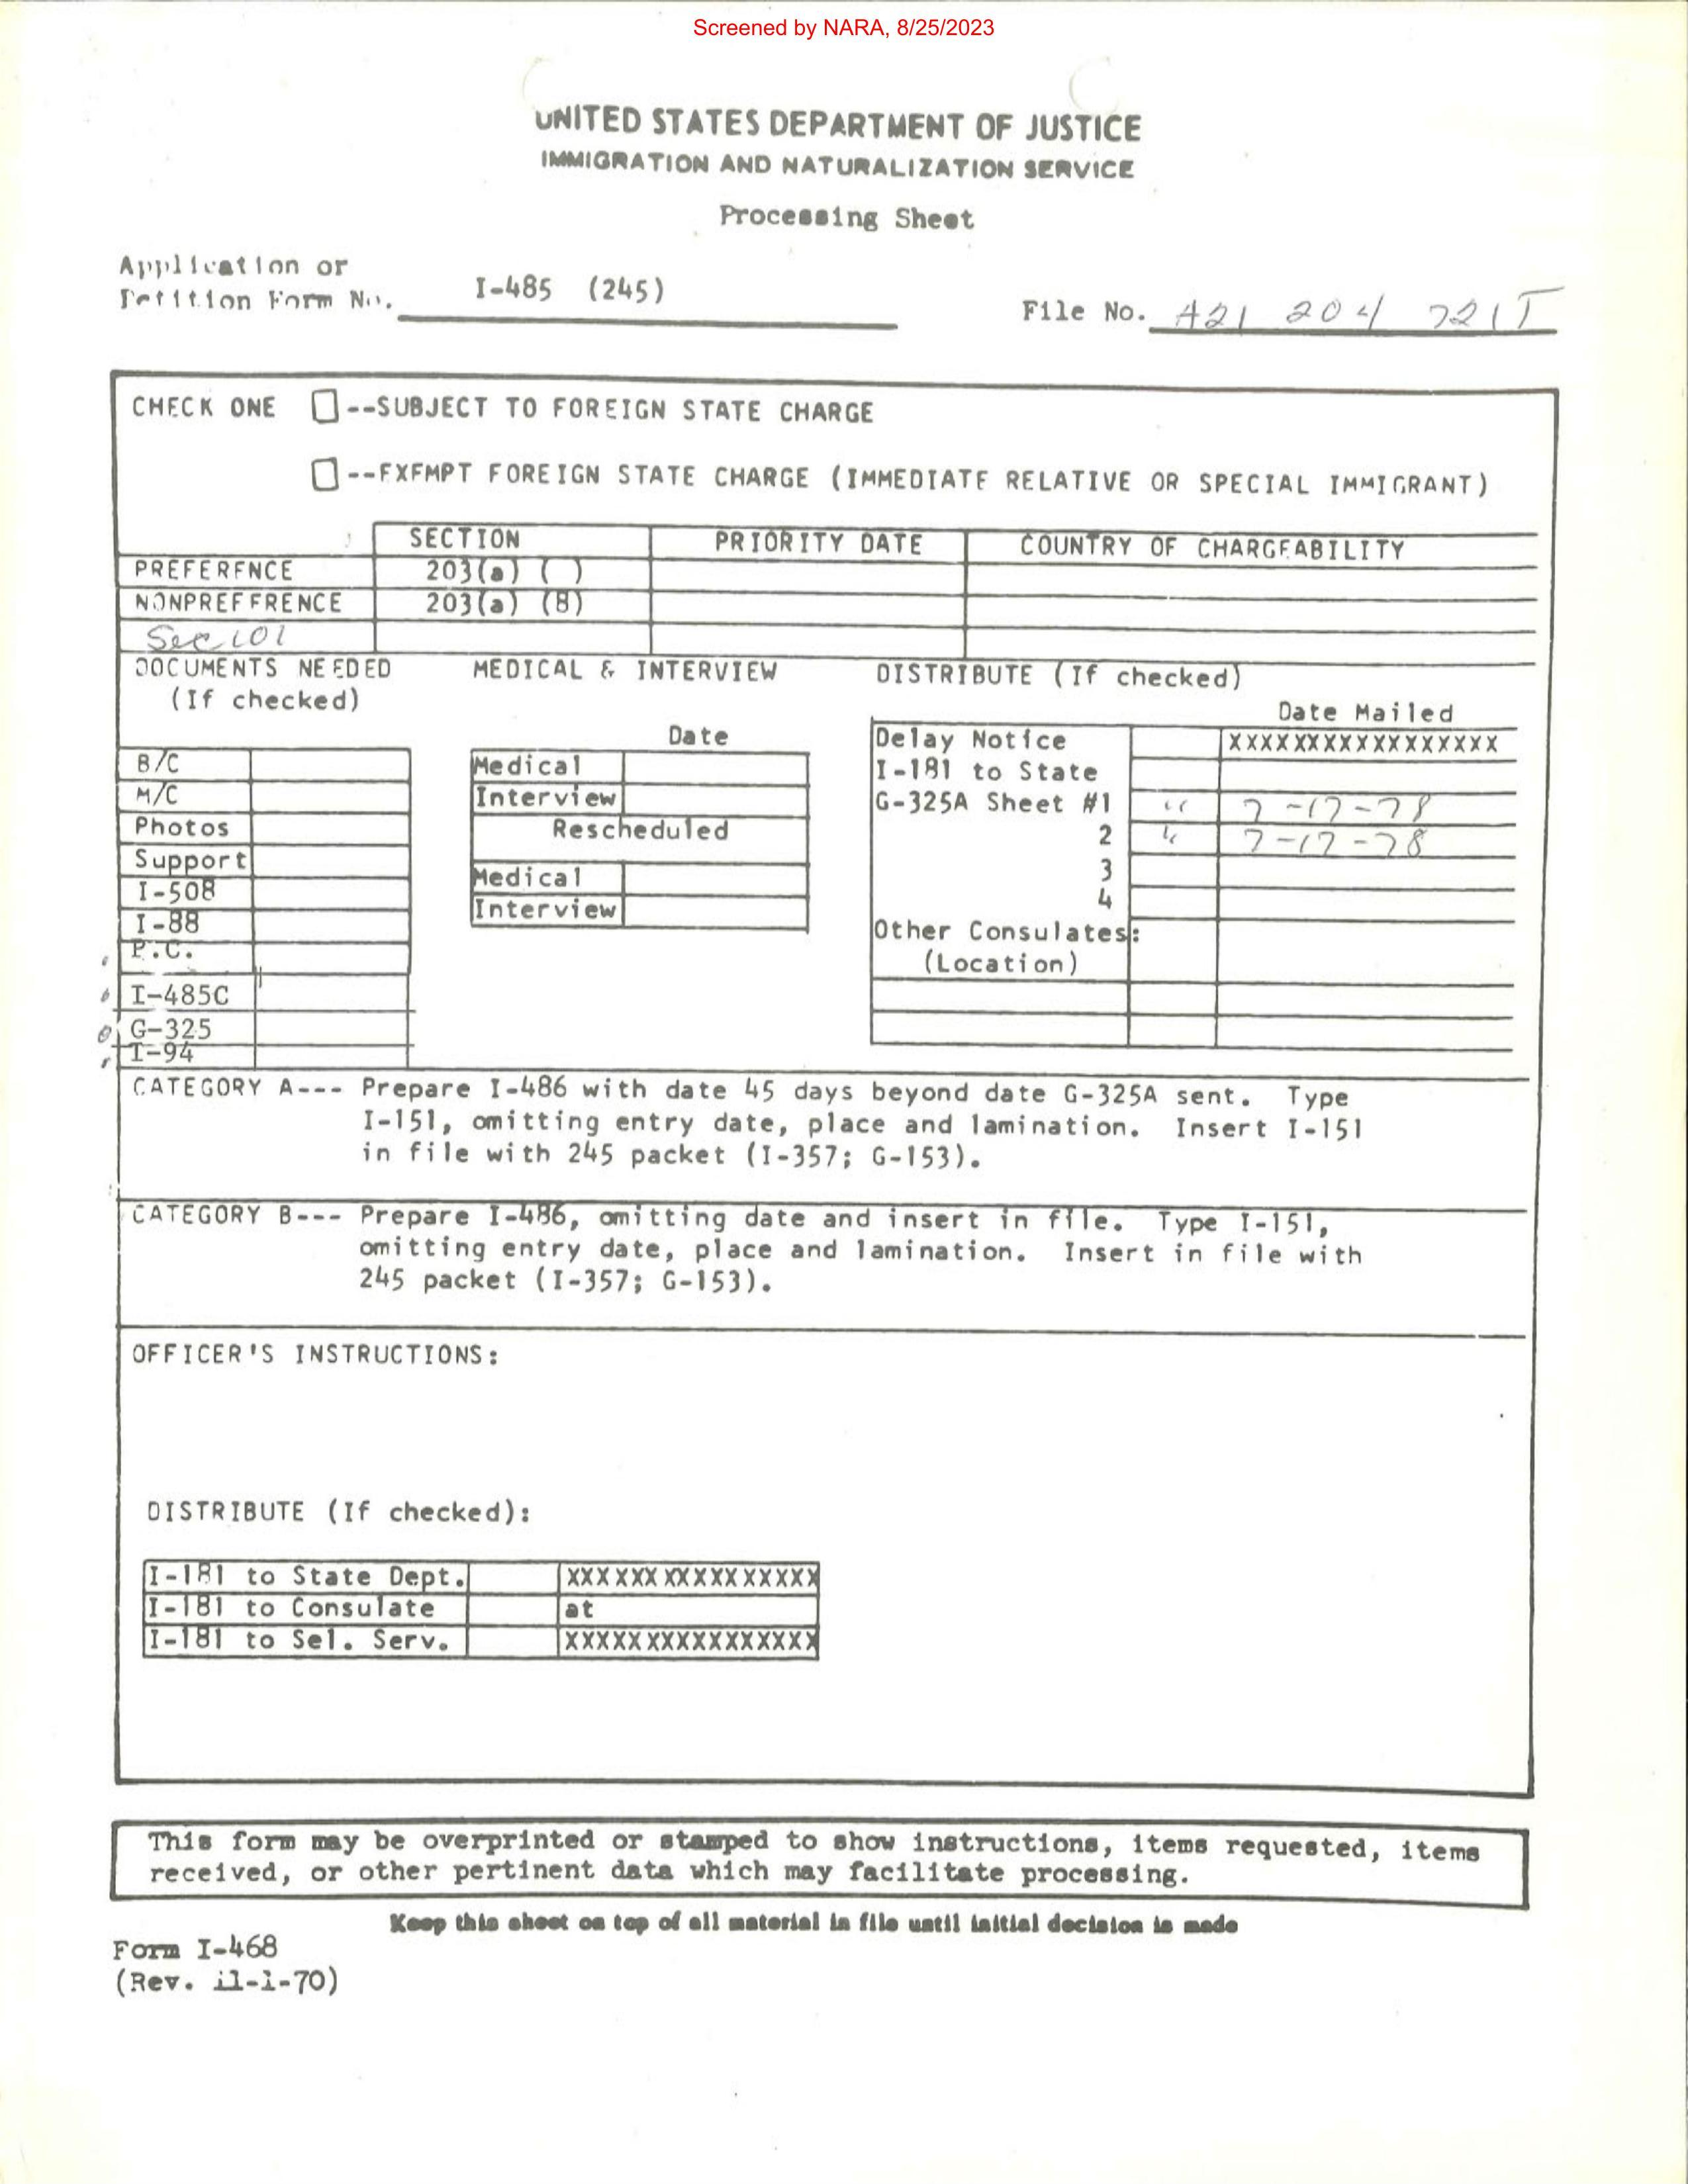 Screened by NARA, 8/25/2023
UNITED STATES DEPARTMENT OF JUSTICE
IMMIGRATION AND NATURALIZATION SERVICE
Processing Sheet
Application or
Petition Form No. I-485 (245)
File No. A21 204 721T
CHECK ONE --SUBJECT TO FOREIGN STATE CHARGE
--EXEMPT FOREIGN STATE CHARGE (IMMEDIATE RELATIVE OR SPECIAL IMMIGRANT)
SECTION PRIORITY DATE COUNTRY OF CHARGEABILITY
PREFERENCE 203(a) ( )
NONPREFERENCE 203(a) (8)
Sec 101
DOCUMENTS NEEDED MEDICAL & INTERVIEW DISTRIBUTE (If checked)
(If checked)
Date Mailed
Date
Delay Notice XXXXXXXXXXXXXXXXX
B/C Medical I-181 to State
M/C Interview G-325A Sheet #1 " 7-17-78
Photos Rescheduled 2 " 7-17-78
Support Medical 3
I-508 Interview 4
I-88 Other Consulates:
P.C. (Location)
I-485C
G-325
I-94
CATEGORY A--- Prepare I-486 with date 45 days beyond date G-325A sent. Type
I-151, omitting entry date, place and lamination. Insert I-151
in file with 245 packet (I-357; G-153).
CATEGORY B--- Prepare I-486, omitting date and insert in file. Type I-151,
omitting entry date, place and lamination. Insert in file with
245 packet (I-357; G-153).
OFFICER'S INSTRUCTIONS:
DISTRIBUTE (If checked):
I-181 to State Dept. XXXXXXXXXXXXXXXX
I-181 to Consulate at
I-181 to Sel. Serv. XXXXXXXXXXXXXXXX
This form may be overprinted or stamped to show instructions, items requested, items
received, or other pertinent data which may facilitate processing.
Keep this sheet on top of all material in file until initial decision is made
Form I-468
(Rev. 11-1-70)